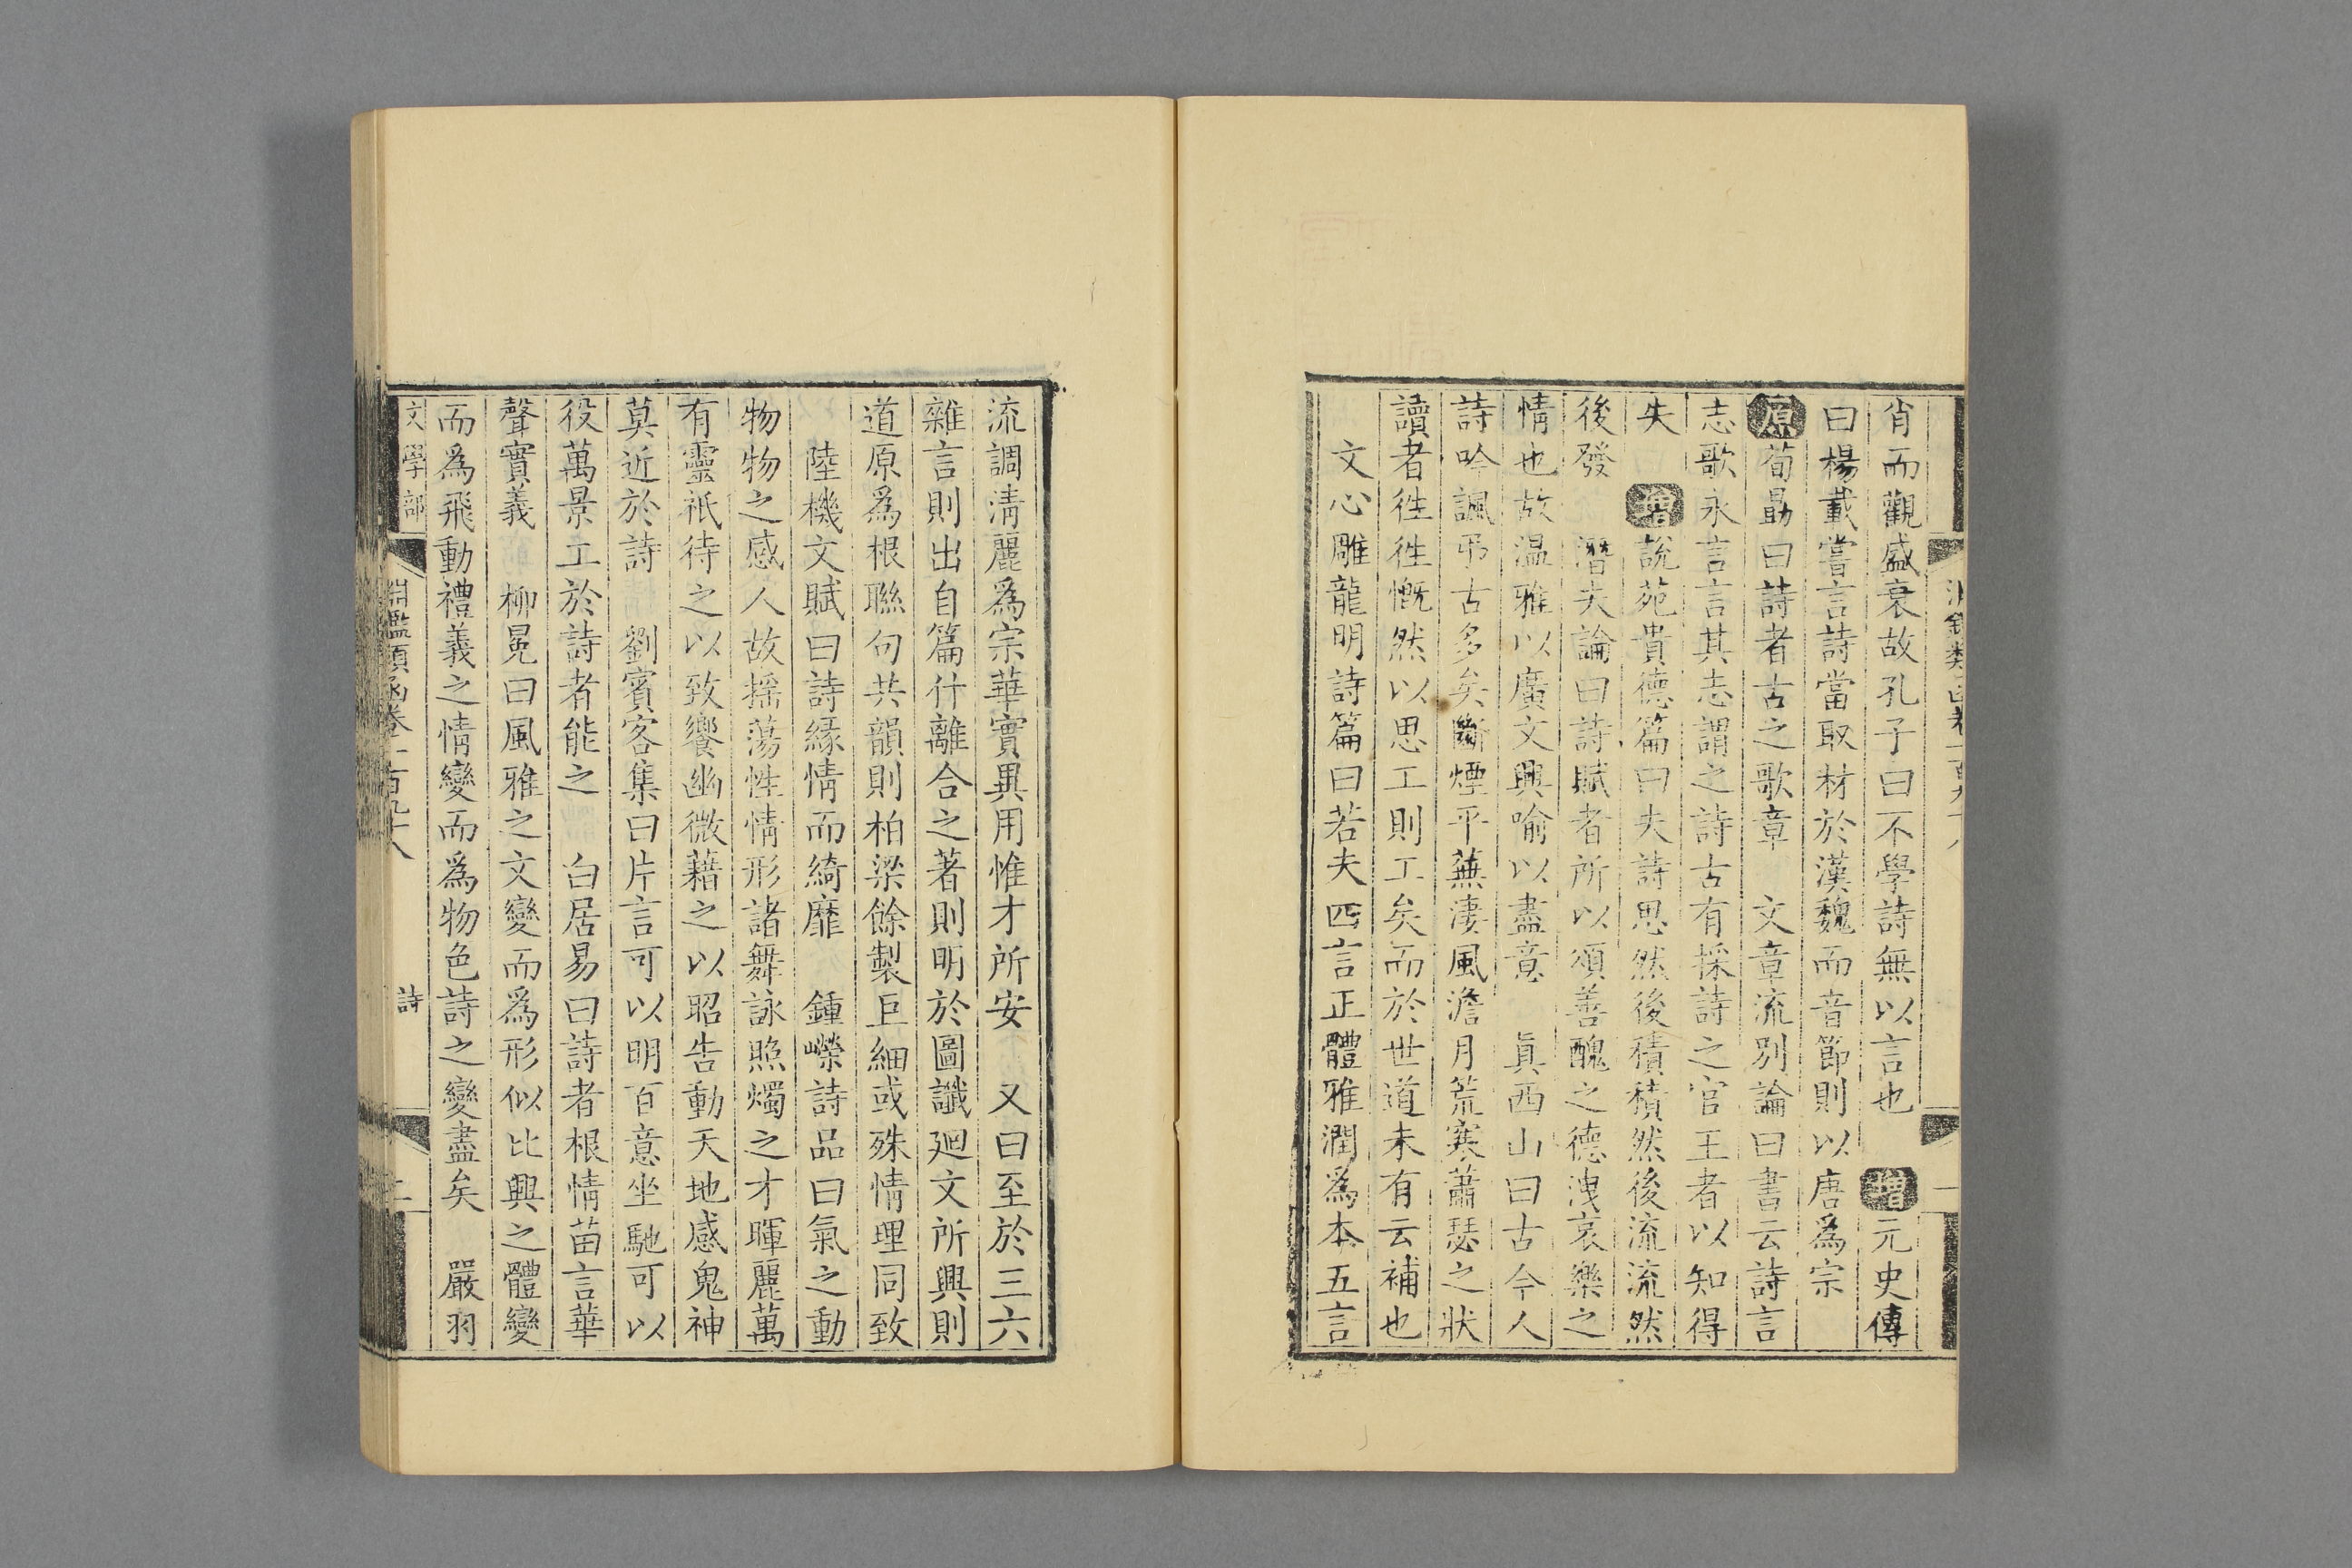 肖而觀盛衰故孔子曰不學詩無以言也　增元史傳
曰楊載嘗言詩當取材於漢魏而音節則以唐爲宗
原荀勗曰詩者古之歌章　文章流別論曰書云詩言
志歌永言言其志謂之詩古有採詩之官王者以知得
失　增說苑貴德篇曰夫詩思然後積積然後流流然
後發　潛夫論曰詩賦者所以頌善醜之德洩哀樂之
情也故温雅以廣文興喻以盡意　眞西山曰古今人
詩吟諷弔古多矣斷煙平蕪淒風澹月荒寒蕭瑟之狀
讀者徃徃慨然以思工則工矣而於世道未有云補也
文心雕龍明詩篇曰若夫四言正體雅潤爲本五言
流調清麗爲宗華實異用惟才所安　又曰至於三六
雜言則出自篇什離合之著則明於圖讖廻文所興則
道原爲根聯句共韻則柏梁餘製巨細或殊情理同致
陸機文賦曰詩緣情而綺靡　鍾嶸詩品曰氣之動
物物之感人故搖蕩性情形諸舞詠照燭之才暉麗萬
有靈祇待之以致饗幽微藉之以昭告動天地感鬼神
莫近於詩　劉賓客集曰片言可以明百意坐馳可以
役萬景工於詩者能之　白居易曰詩者根情苗言華
聲實義　柳冕曰風雅之文變而爲形似比興之體變
而爲飛動禮義之情變而爲物色詩之變盡矣　嚴羽
文學部　淵鑑類函卷一百九十八　詩　二